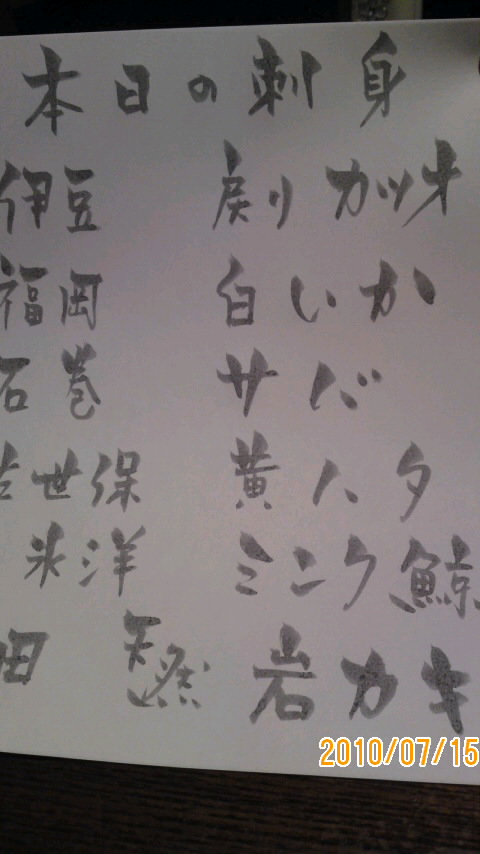 本日の刺身
伊豆 戻りカツオ
福岡 白いか
石巻 サバ
佐世保 黄ハタ
氷洋 ミンク鯨
田 天然岩カキ
2010/07/15